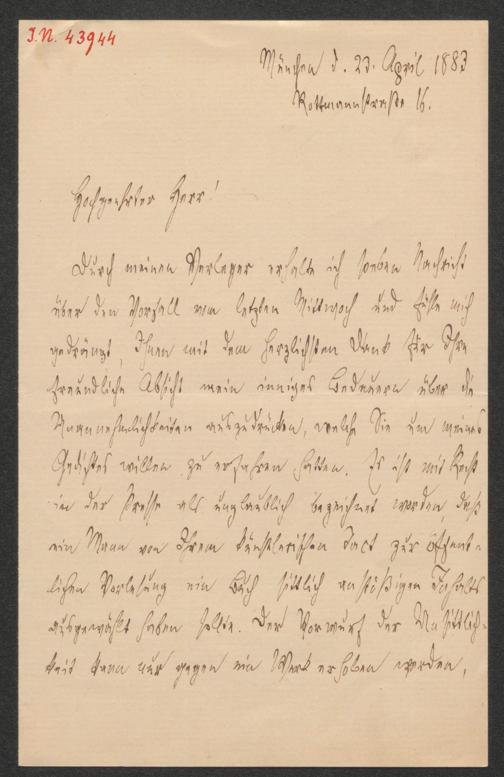 I.N. 43944
München d. 23. April 1883
Rottmannstraße 16.
Hochgeehrter Herr!
Durch meinen Verleger erhalte ich soeben Nachricht
über den Vorfall vom letzten Mittwoch und fühle mich
gedrängt, Ihnen mit dem herzlichsten Dank für Ihre
freundliche Absicht mein inniges Bedauern über die
Unannehmlichkeiten auszudrücken, welche Sie um meines
Gedichtes willen zu erfahren hatten. Es ist mit Recht
in der Presse als unglaublich bezeichnet worden, daß
ein Mann von Ihrem künstlerischen Tact zur öffent-
lichen Vorlesung ein Buch sittlich anstößigen Inhalts
ausgewählt haben sollte. Der Vorwurf der Unsittlich-
keit kann nur gegen ein Werk erhoben werden,